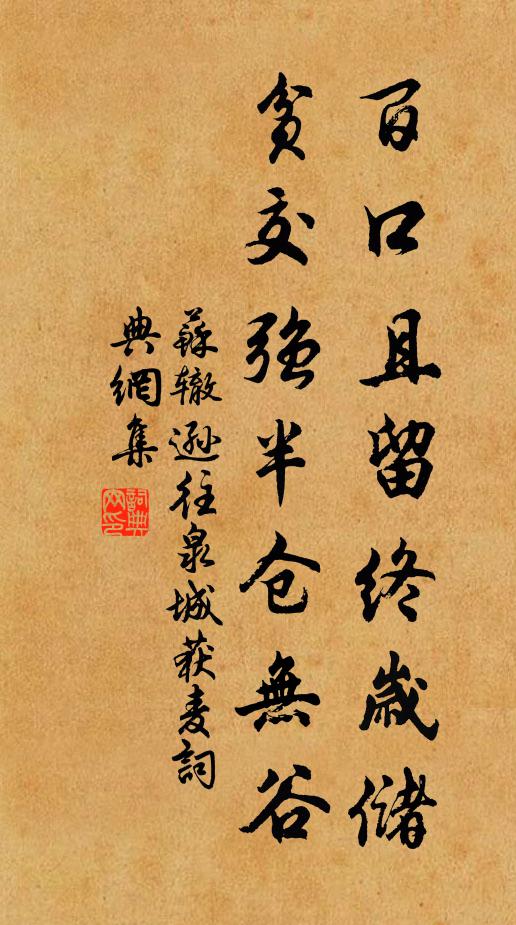 百口且留終歲儲
貧交強半仓無谷
蘇辙遜往泉城获麦詞
典網集
詞典
网印